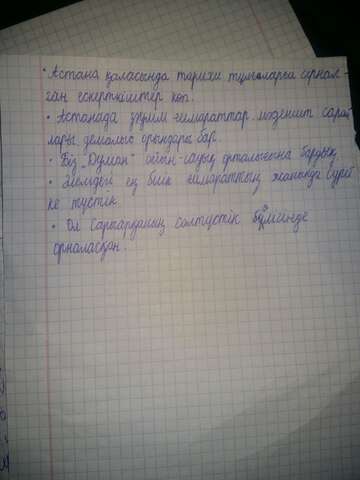 • Астана қаласында тарихи тұлғаларға арнал-
ған ескерткіштер көп.
• Астанада зәулім ғимараттар, мәдениет сарай
лары, демалыс орындары бар.
• Біз "Думан" ойын-сауық орталығына бардық.
• Әлемдегі ең биік ғимараттың жанында сурет
ке түстік.
• Ол Сарыарқаның солтүстік бөлігінде
орналасқан.